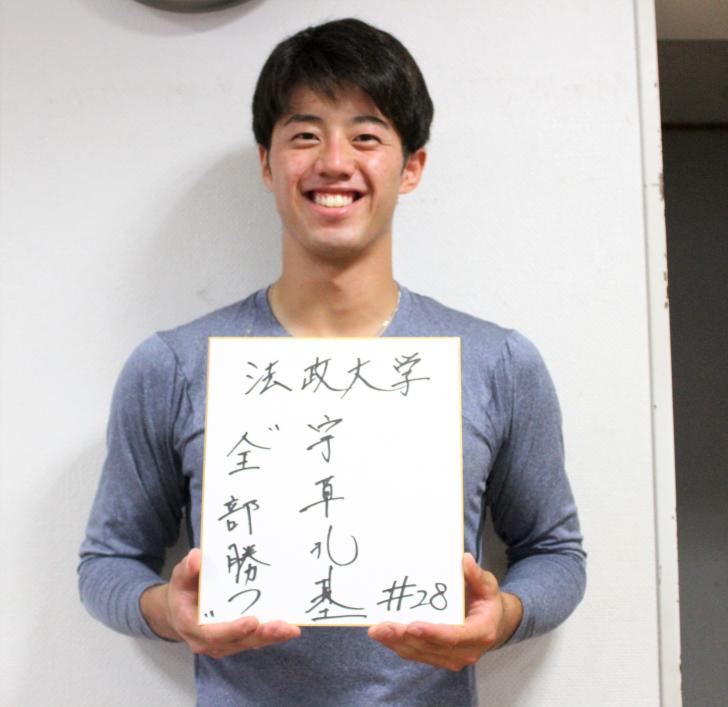 法政大学
宇草孔基 #28
"全部勝つ"